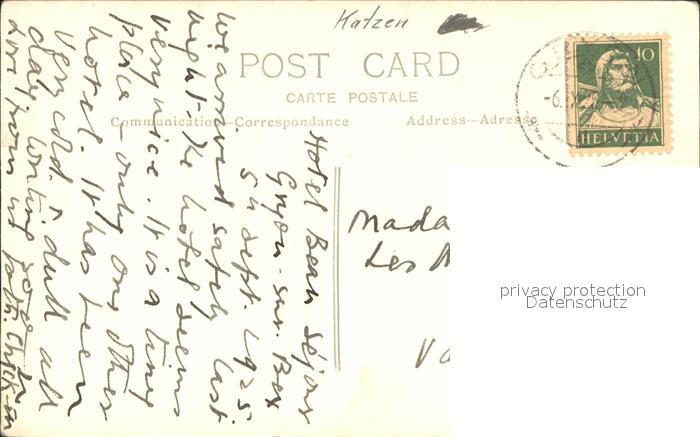 Katzen
POST CARD
CARTE POSTALE
Communication—Correspondence
Address—Adresse
10
HELVETIA
Hotel Beau Séjour
Gryon-sur-Bex
5th Sept. 1925
We arrived safely last
night. The hotel seems
very nice. It is a tiny
place - only one other
hotel. It has been
very cold & dull all
day. Writing soon
Love from us both.
Mada
Les
privacy protection
Datenschutz